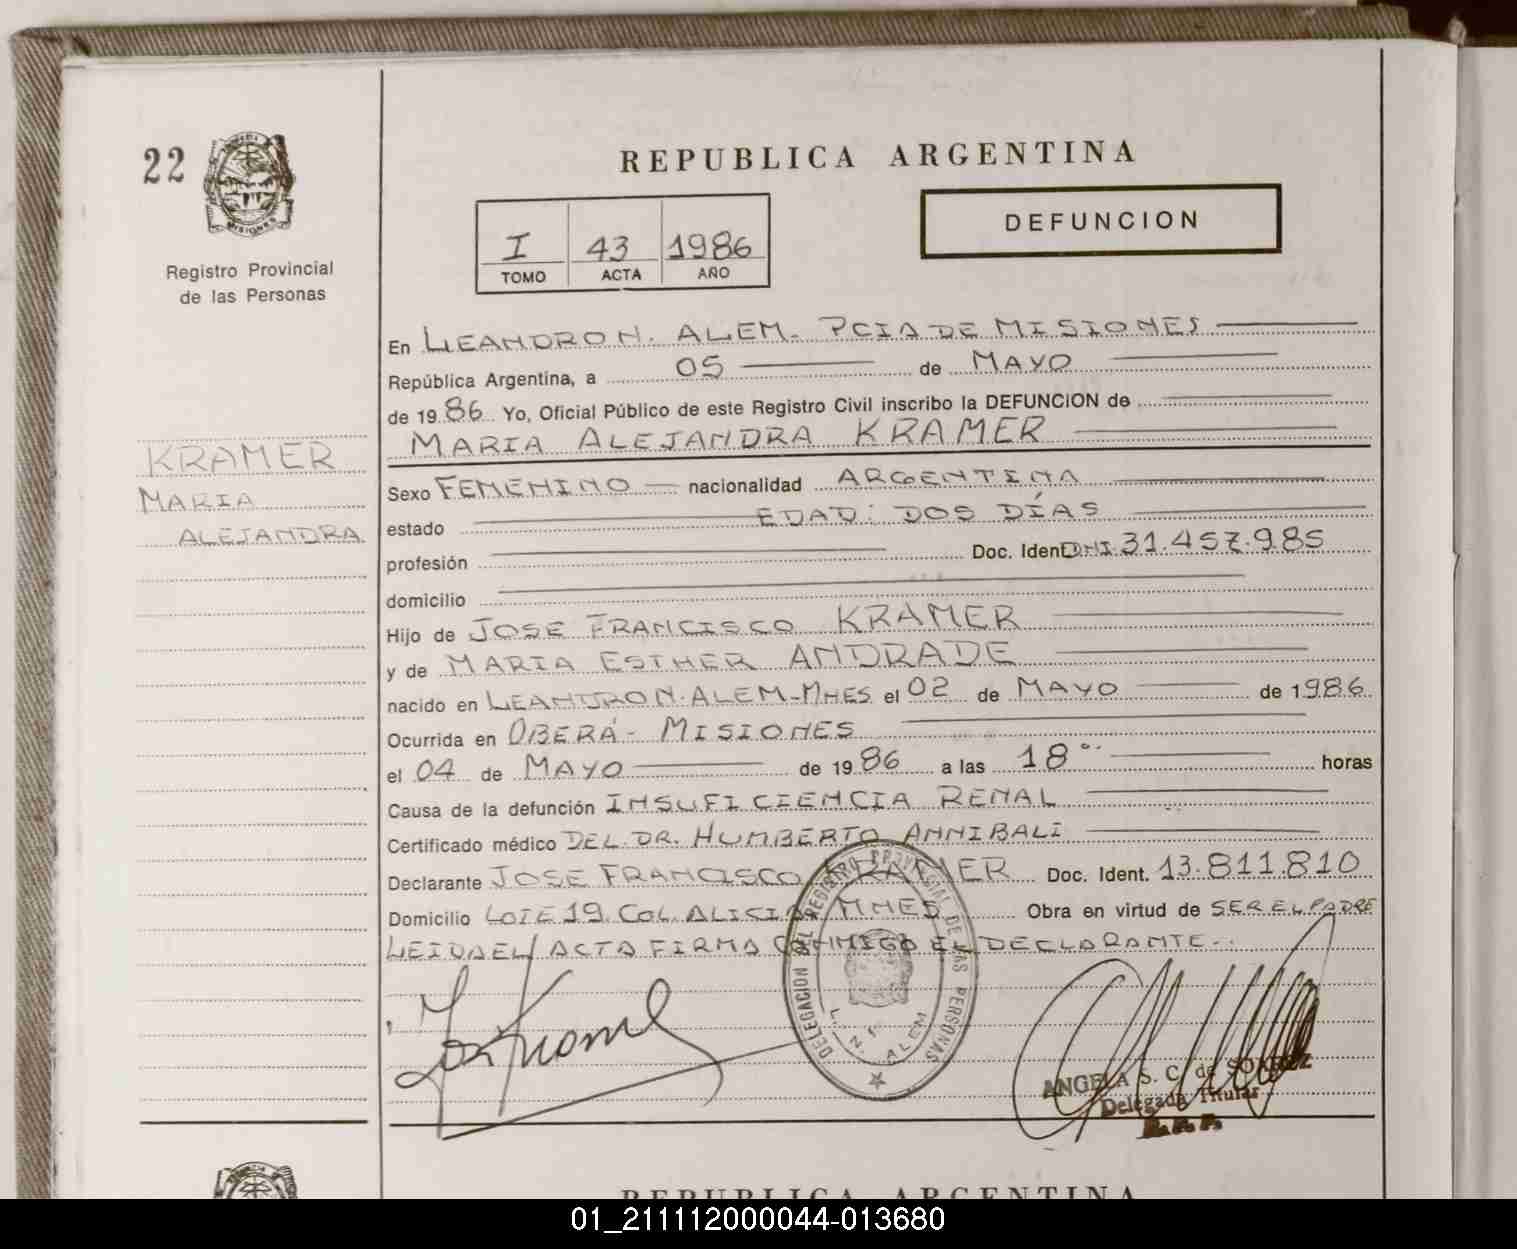 22
MISIONES
Registro Provincial
de las Personas
KRAMER
MARIA
ALEJANDRA
REPUBLICA ARGENTINA
I 43 1986
TOMO ACTA AÑO
DEFUNCION
En LEANDRO N. ALEM - PCIA DE MISIONES
República Argentina, a 05 de MAYO
de 1986 Yo, Oficial Público de este Registro Civil inscribo la DEFUNCION de
MARIA ALEJANDRA KRAMER
Sexo FEMENINO nacionalidad ARGENTINA
estado EDAD: DOS DÍAS
profesión Doc. Ident. DNI. 31.457.985
domicilio
Hijo de JOSE FRANCISCO KRAMER
y de MARIA ESTHER ANDRADE
nacido en LEANDRO N. ALEM-MNES el 02 de MAYO de 1986
Ocurrida en OBERÁ - MISIONES
el 04 de MAYO de 1986 a las 18 horas
Causa de la defunción INSUFICIENCIA RENAL
Certificado médico DEL DR. HUMBERTO ANNIBALI
Declarante JOSE FRANCISCO KRAMER Doc. Ident. 13.811.810
Domicilio LOTE 19. COL. ALICIA MNES Obra en virtud de SER EL PADRE
LEIDA EL ACTA FIRMA CONMIGO EL DECLARANTE..
DELEGACION DEL REGISTRO PROVINCIAL DE LAS PERSONAS
L. N. ALEM
ANGELA S. C. de SOAREZ
Delegada Titular
R. P. P.
REPUBLICA ARGENTINA
01_211112000044-013680